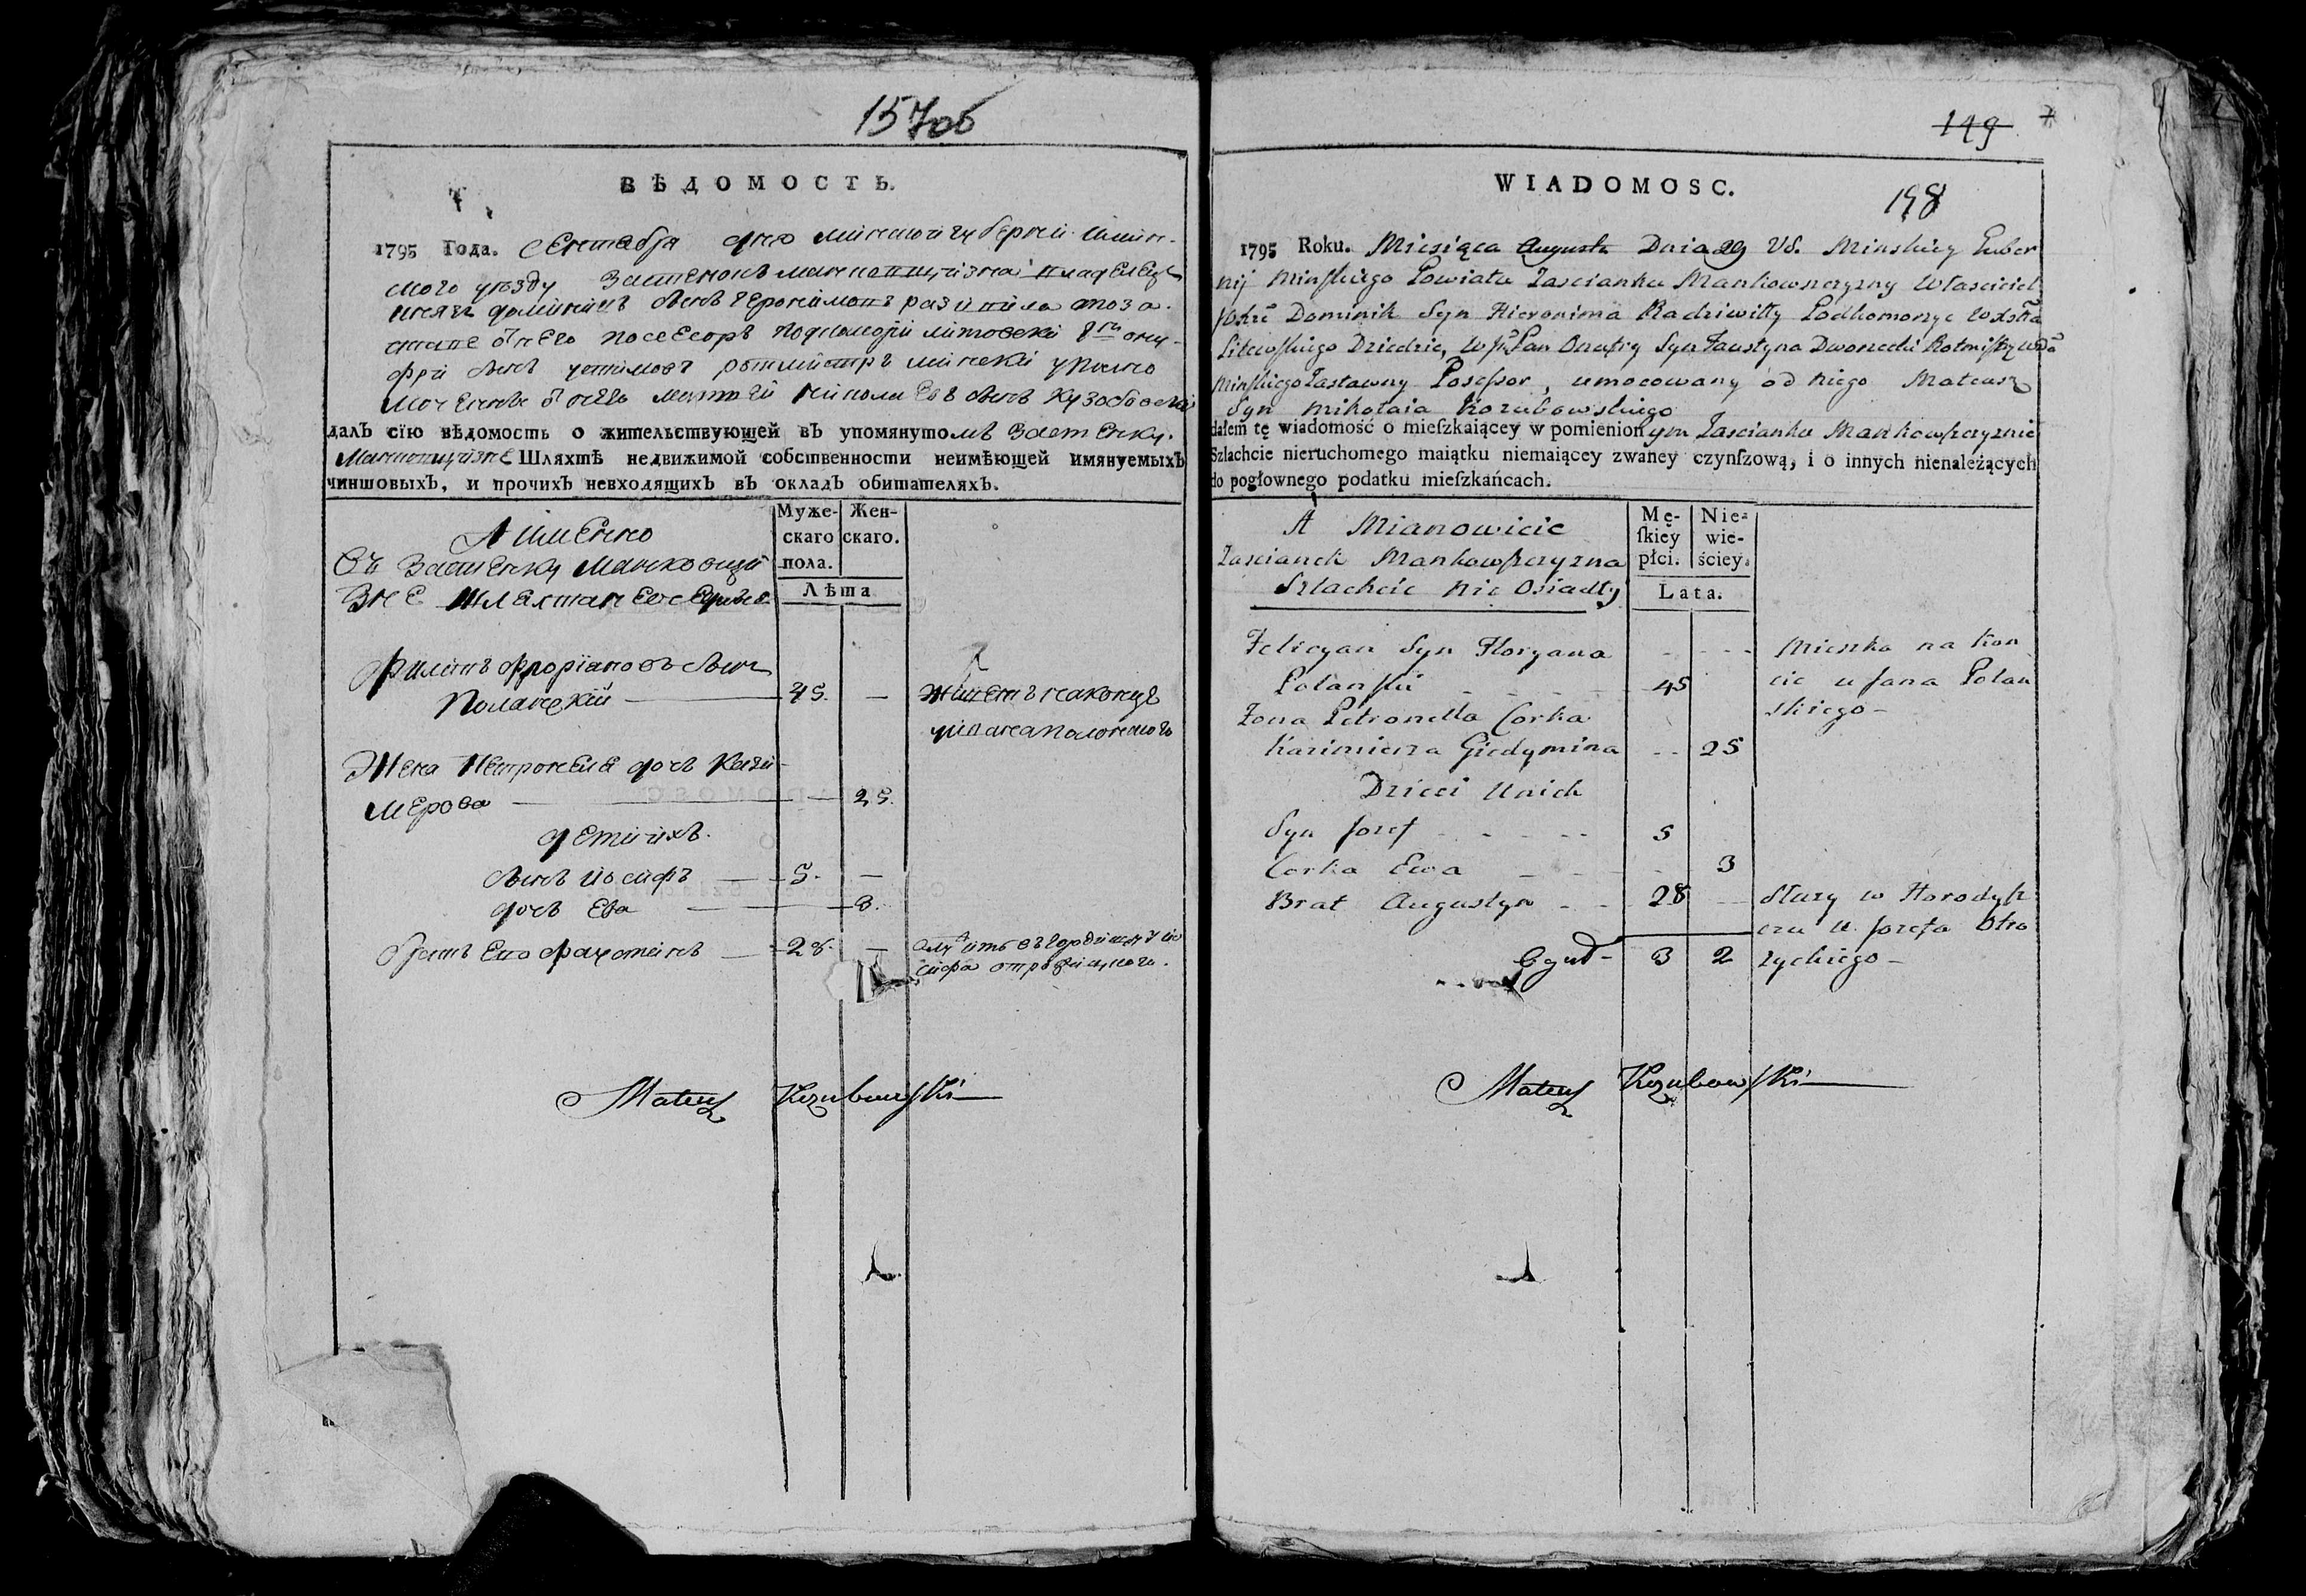 157об
ВѢДОМОСТЬ.
1795 Года. Сентября дня минской губерніи минс-
кого уѣзду застенокъ манковщизна владелецъ
князь доминикъ сынъ геронимовъ радивилъ
него посесоръ подкоморій литовскій
сынъ ротмистръ минскій уполно
моченны о него матеей николаевъ сынъ кузобовскій
далъ сїю вѣдомость о жительствующей въ упомянутомъ застенку
манковщизне Шляхтѣ недвижимой собственности неимѣющей имянуемыхъ
чиншовыхъ, и прочихъ невходящихъ въ окладъ обитателяхъ.
А имЕнно
Въ застенку манковщи
зне шляхта
Муже-
скаго
пола.
Жен-
скаго.
Лѣта
Филипъ Флоріановъ сынъ
Поланскій 45. —
живетъ наконце
уяна поланского
Жена Петронеля дочь Кази
мерова — 25.
дети ихъ.
сынъ иосифъ — 5. —
дочь Ева — 3.
братъ Его — 28. —
служитъ
сифа
Mateusz Kozubowski
149
WIADOMOSC.
148
1795 Roku. Miesiąca Augusta Dnia 29 VS. Minskiey Guber
nij Minskiego Powiatu Zascianku Mankowszczyzny Własciciel
Dominik Syn Hieronima Radziwiłły Podkomorzyc
Litewskiego Dziedzic, Pan Onufry Syn Faustyna Dworzecki Rotmistrz
Minskiego Zastawny Posessor, umocowany od niego Mateusz
Syn Mikołaia Kozubowskiego
dałem tę wiadomość o mieſzkaiącey w pomienionym Zascianku Mankowszczyznie
Szlachcie nieruchomego maiątku niemaiącey zwaney czynſzową, i o innych nienależących
do pogłownego podatku mieſzkańcach.
A Mianowicie
Zascianek Mankowszczyzna
Szlachcic nie Osiadły
Mę-
ſkiey
płci.
Nie-
wie-
ściey.
Lata.
Felicyan Syn Floryana
Polanski 45
Mieszka na kon
cie u Jana Polan
skiego –
Zona Petronella Corka
Kazimierza Giedymina 25
Dzieci Unich
Syn Jozef 5
Corka Ewa 3
Brat Augustyn 28
Służy w Horodysz
czu u Jozefa Otro
zyckiego –
Oguł – 3 2
Mateusz Kozubowski